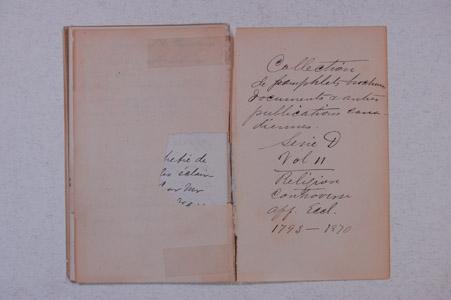 hetié de
éclair
Mr
Collection
de pamphlets brochures
documents & autres
publications cana
diennes.
Serie D
Vol 11
Religion
Controverse
aff. Eccl.
1793 — 1870